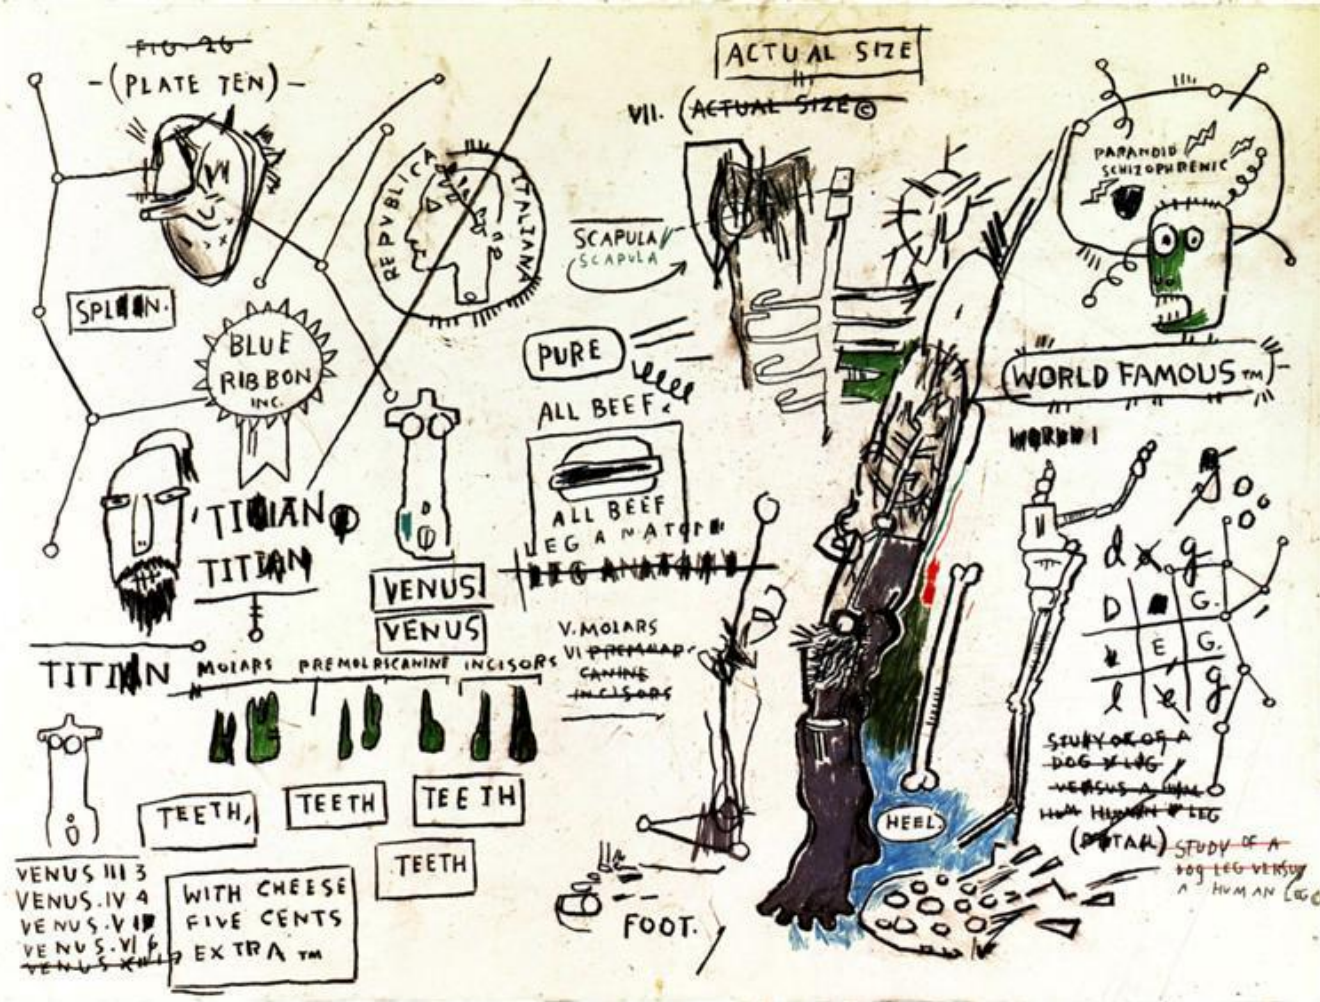 FIG. 26
-(PLATE TEN)-
SPLEEN.
BLUE
RIBBON
INC.
REPVBLICA ITALIANA
TITIAN
TITIAN
TITIAN
VENUS
VENUS
MOLARS PREMOLARS CANINE INCISORS
TEETH,
TEETH
TEETH
TEETH
VENUS III 3
VENUS.IV 4
VENUS.V
VENUS.VI
VENUS
WITH CHEESE
FIVE CENTS
EXTRA ™
ACTUAL SIZE
VII. (ACTUAL SIZE ©
SCAPULA
SCAPULA
PURE
ALL BEEF.
ALL BEEF
LEG ANATOMY
LEG ANATOMY
V. MOLARS
VI
CANINE
INCISORS
FOOT.
HEEL.
PARANOID
SCHIZOPHRENIC
WORLD FAMOUS™
d g
D G.
E G.
l e g
STUDY OF A
DOG LEG
VERSUS A
HUMAN LEG
(DETAIL)
STUDY OF A
DOG LEG VERSUS
A HUMAN LEG©